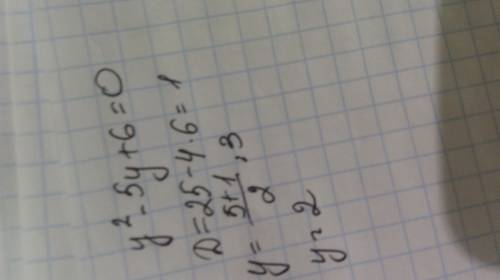 y²-5y+6=0
D=25-4·6=1
y=(5+1)/2, 3
y=2